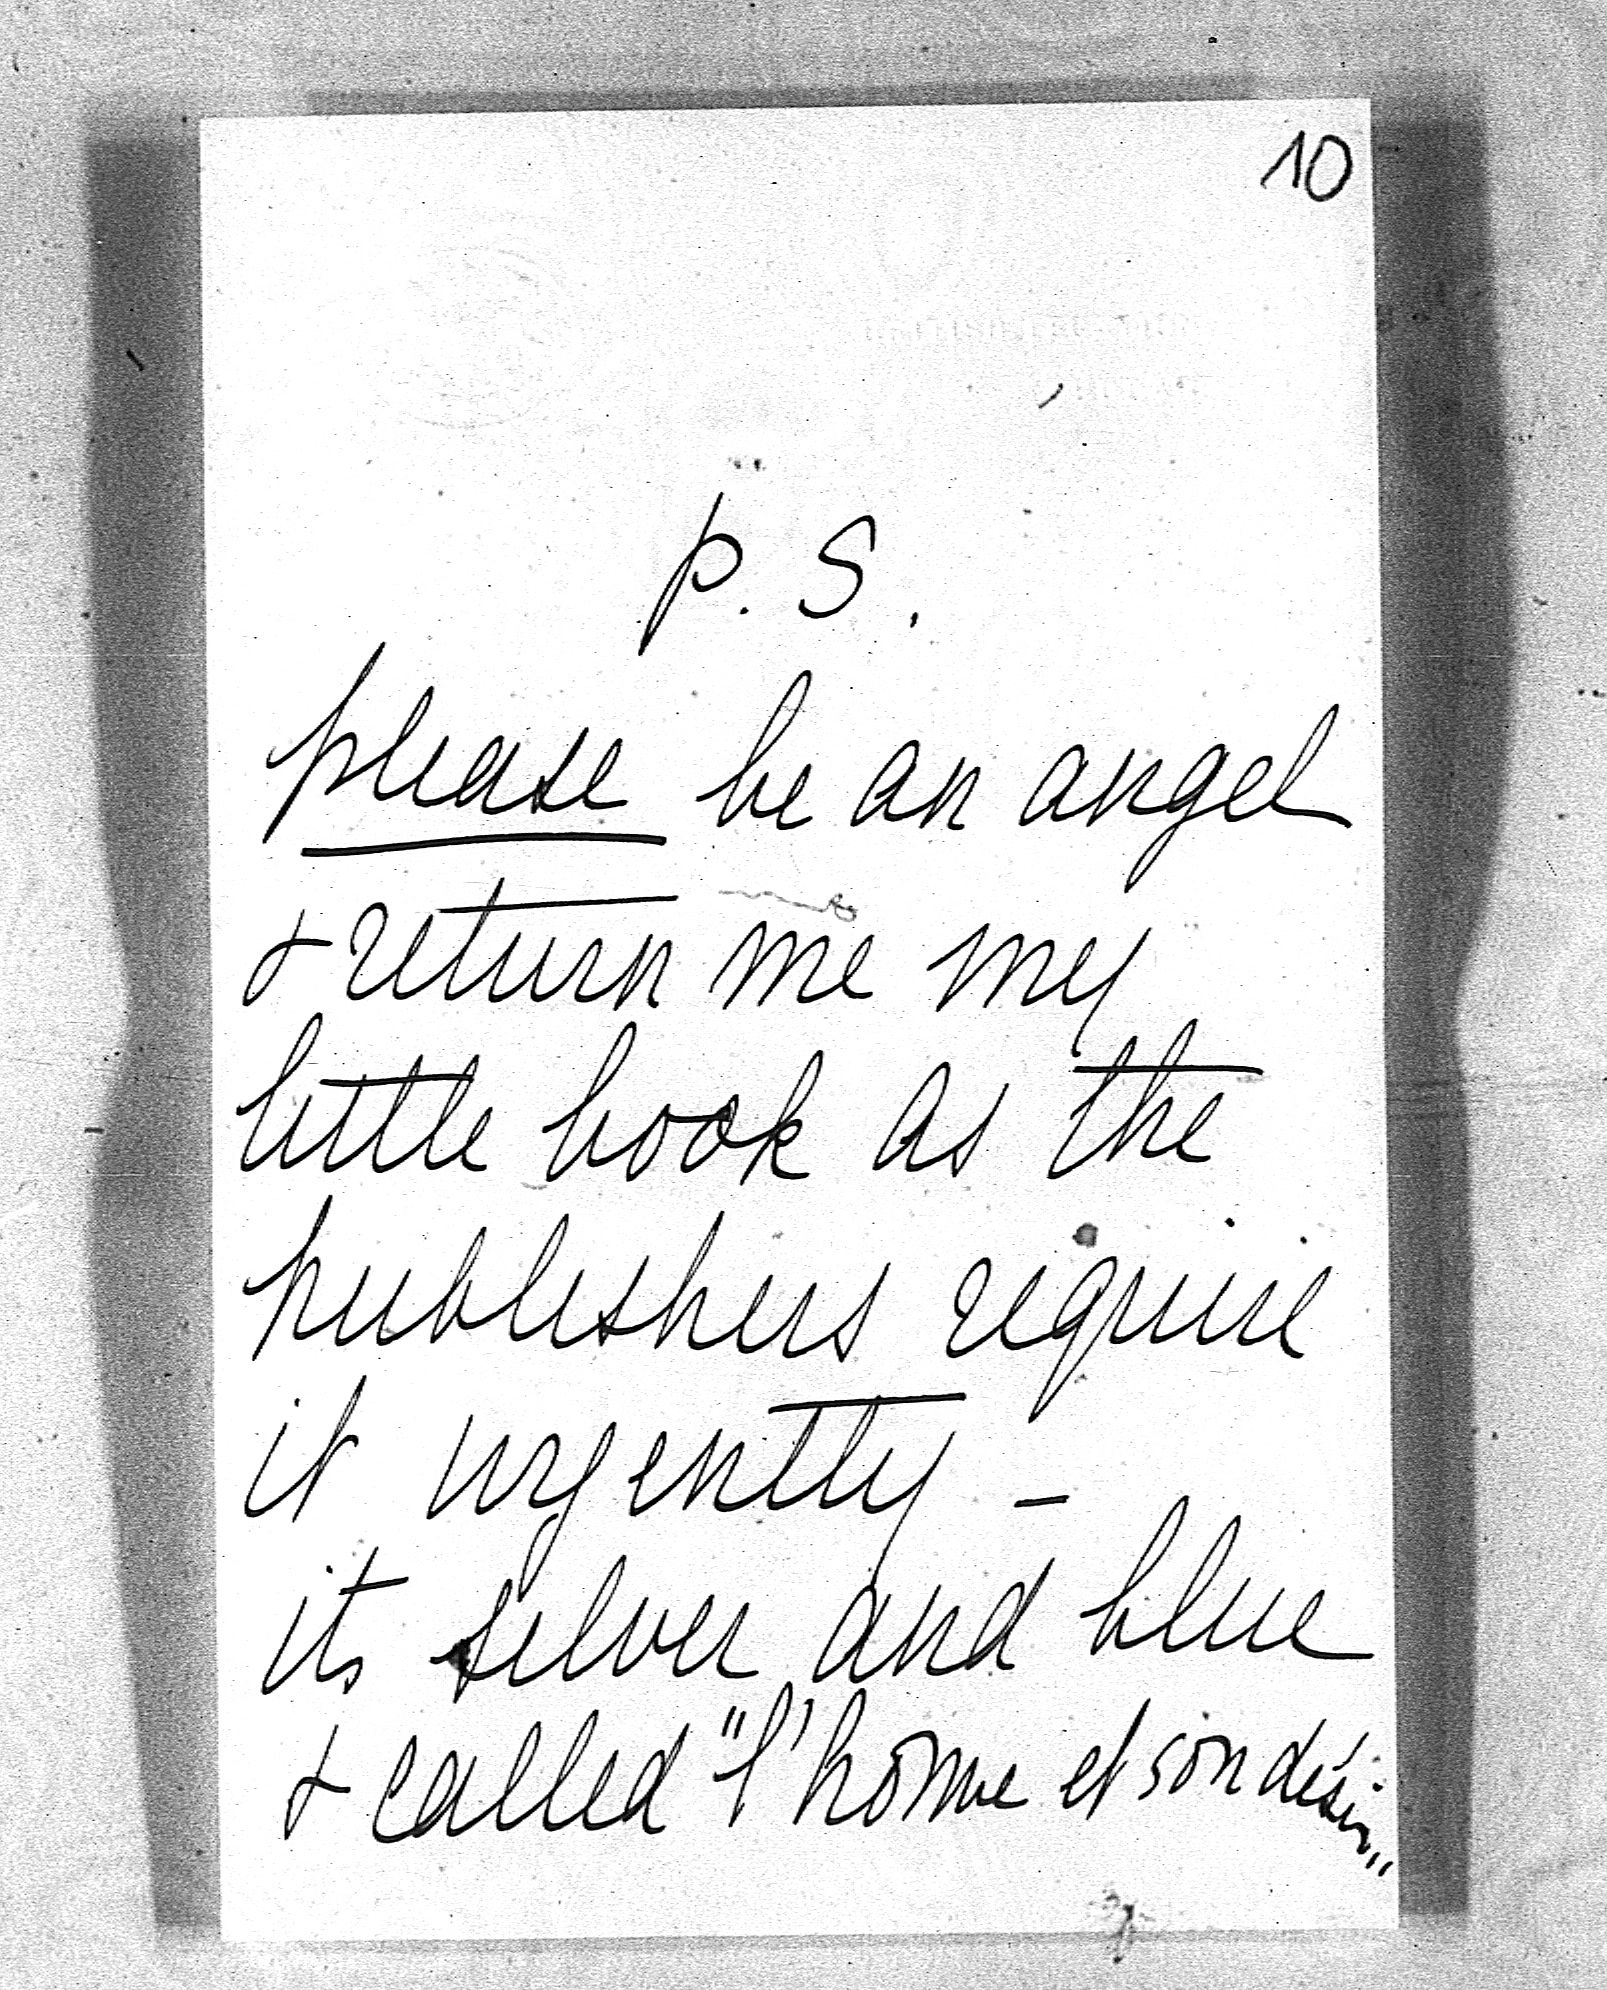 10
P.S.
please be an angel
& return me my
little book as the
publishers require
it urgently –
its silver and blue
& called "l'hōme et son désir"